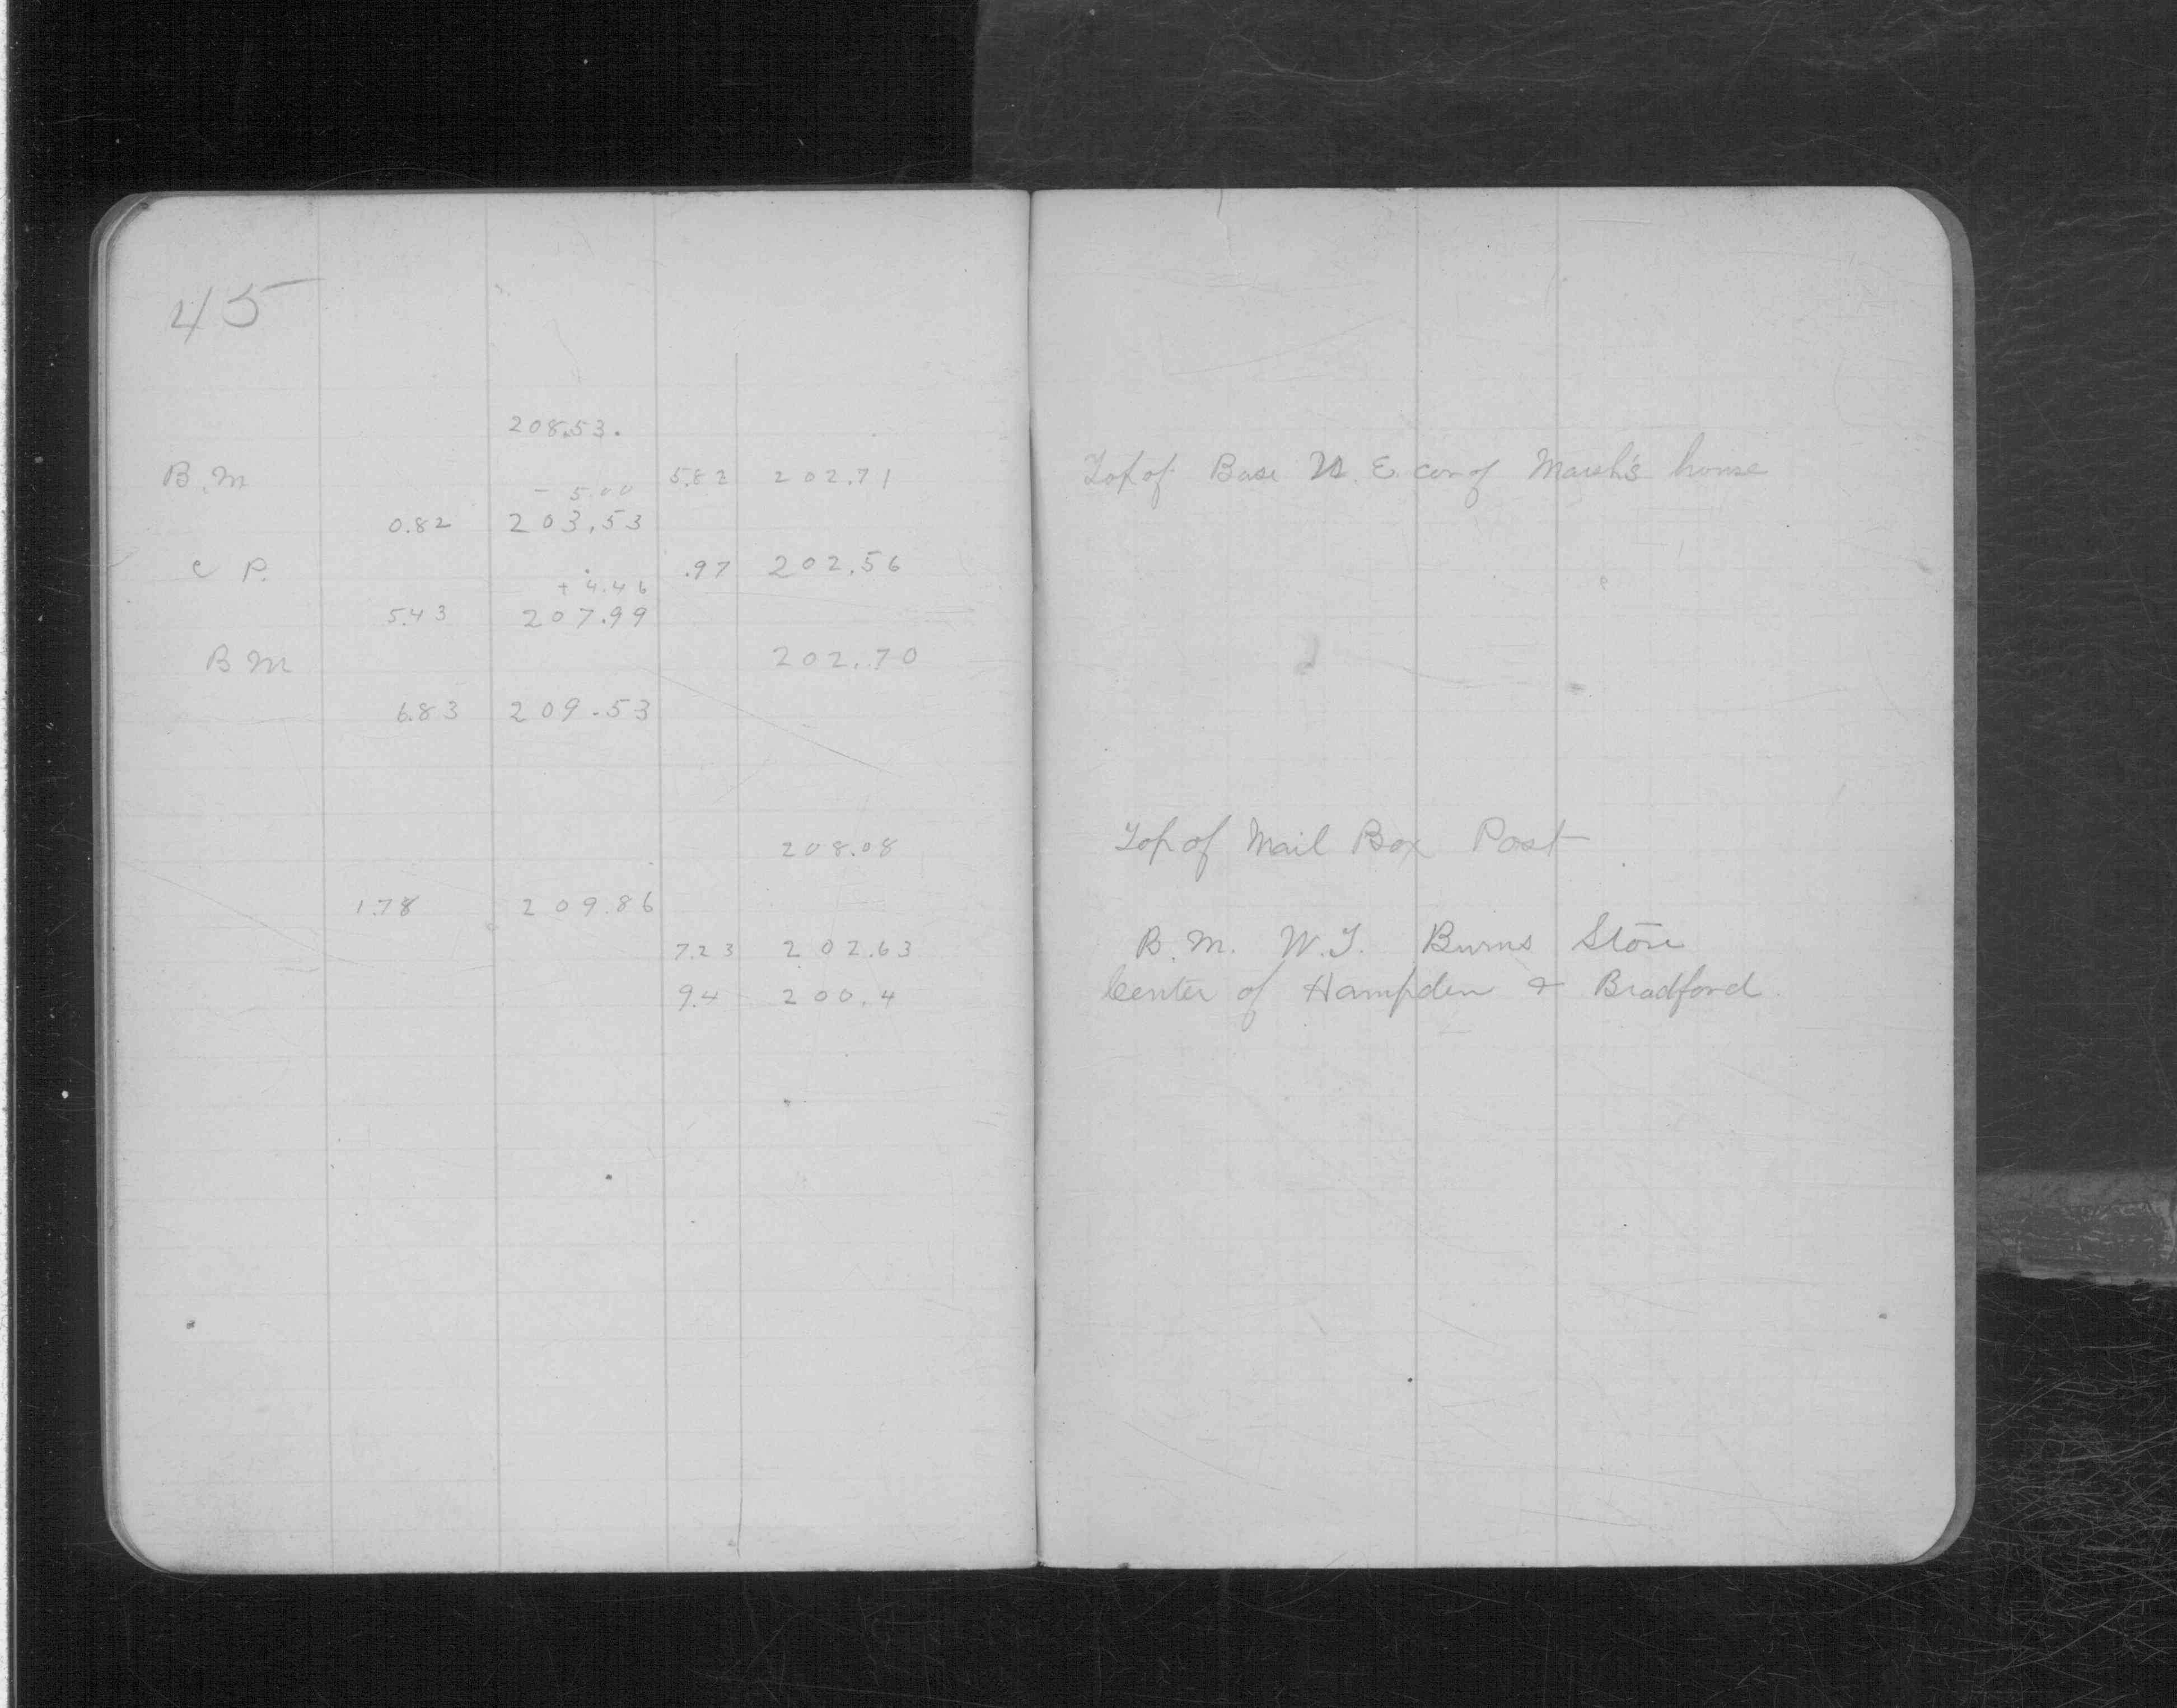 45
208.53.
B.M 5.82 202.71 Top of Base N. E. cor of Marsh's house
- 5.00
0.82 203.53
C P. .97 202.56
+ 4.46
5.43 207.99
B M 202.70
6.83 209.53
208.08 Top of Mail Box Post
1.78 209.86
7.23 202.63 B.M. W.T. Burns Store
9.4 200.4 Center of Hampden & Bradford